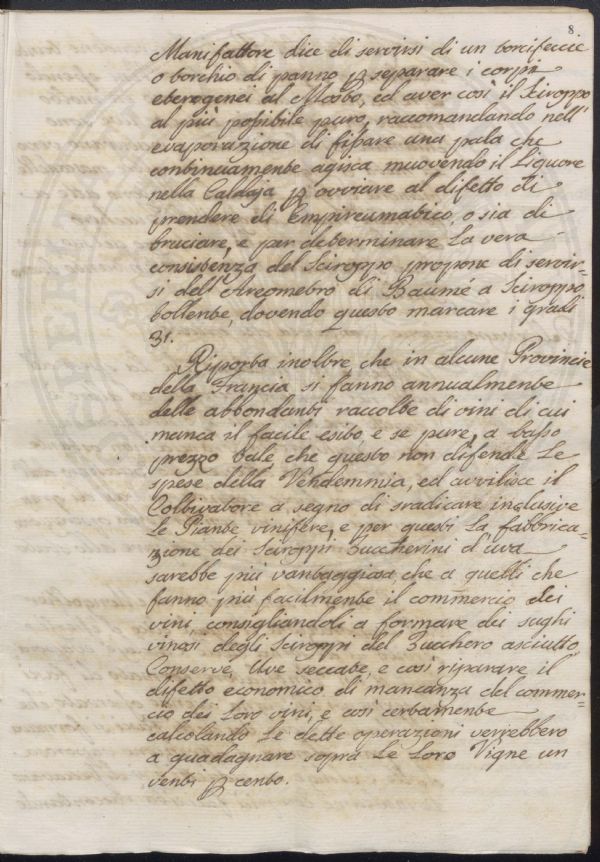 8
Manifattore dice di servirsi di un
o borchio di panno p separare i corpi
eterogenei al Mosto, ed aver così il Sciroppo
al più possibile puro, raccomandando nell'
evaporazione di fissare una pala che
continuamente agisca muovendo il Liquore
nella Caldaja p ovviare al difetto di
prendere di Empireumatico, o sia di
bruciare, e per determinare La vera
consistenza del Sciroppo propone di servir-
si dell'Areometro di Baumè a Sciroppo
bollente, dovendo questo marcare i gradi
31.
Riporta inoltre, che in alcune Provincie
della Francia si fanno annualmente
delle abbondanti raccolte di vini di cui
manca il facile esito, e se pure, a basso
prezzo tale che questo non difende Le
spese della Vendemmia, ed avvilisce il
Coltivatore a segno di sradicare inclusive
Le Piante vinifere, e per questi La fabbrica-
zione dei Sciroppi Zuccherini d'uva
sarebbe più vantaggiosa, che a quelli che
fanno più facilmente il commercio dei
vini, consigliandoli a formare dei sughi
vinosi degli Sciroppi del Zucchero asciutto,
Conserve, Uve seccate, e così riparare il
difetto economico di mancanza del commer-
cio dei Loro vini, e così certamente
calcolando Le dette operazioni verrebbero
a guadagnare sopra Le Loro Vigne un
venti p cento.